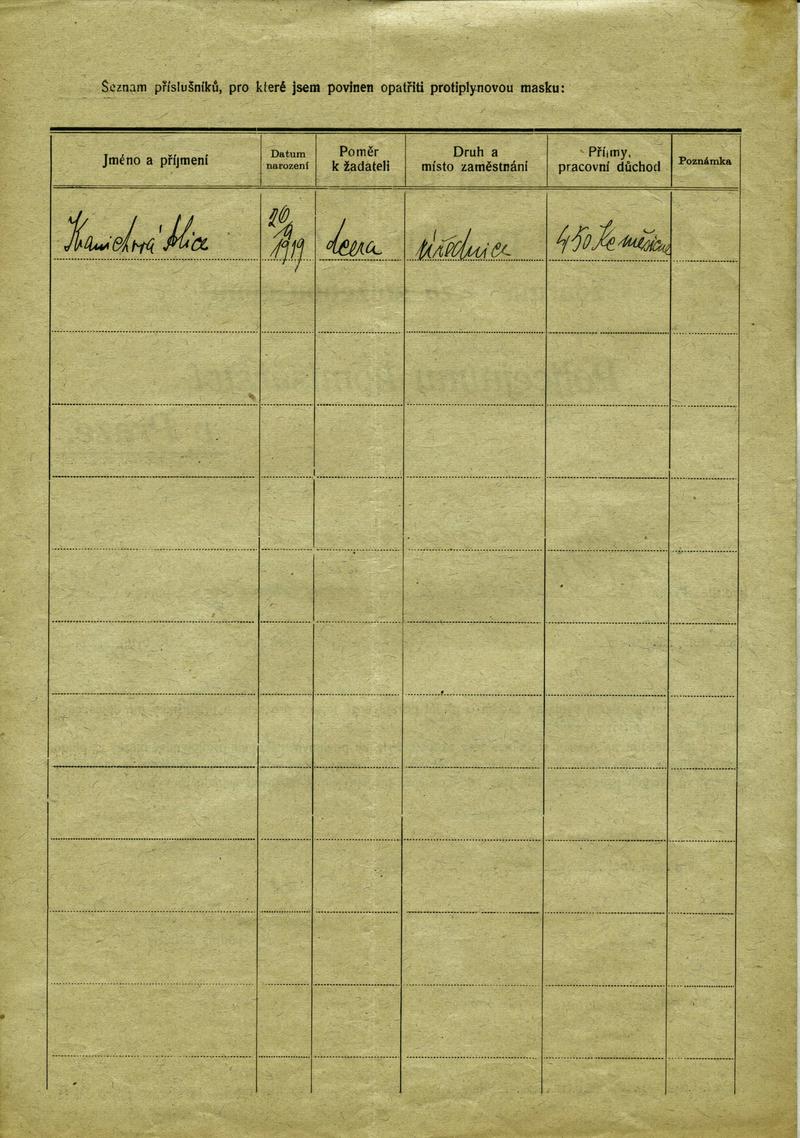 Seznam příslušníků, pro které jsem povinen opatřiti protiplynovou masku:
Jméno a příjmení
Datum narození
Poměr k žadateli
Druh a místo zaměstnání
Příjmy, pracovní důchod
Poznámka
Alice
20/9 1919
dcera
úřednice
450 Kč měsíčně